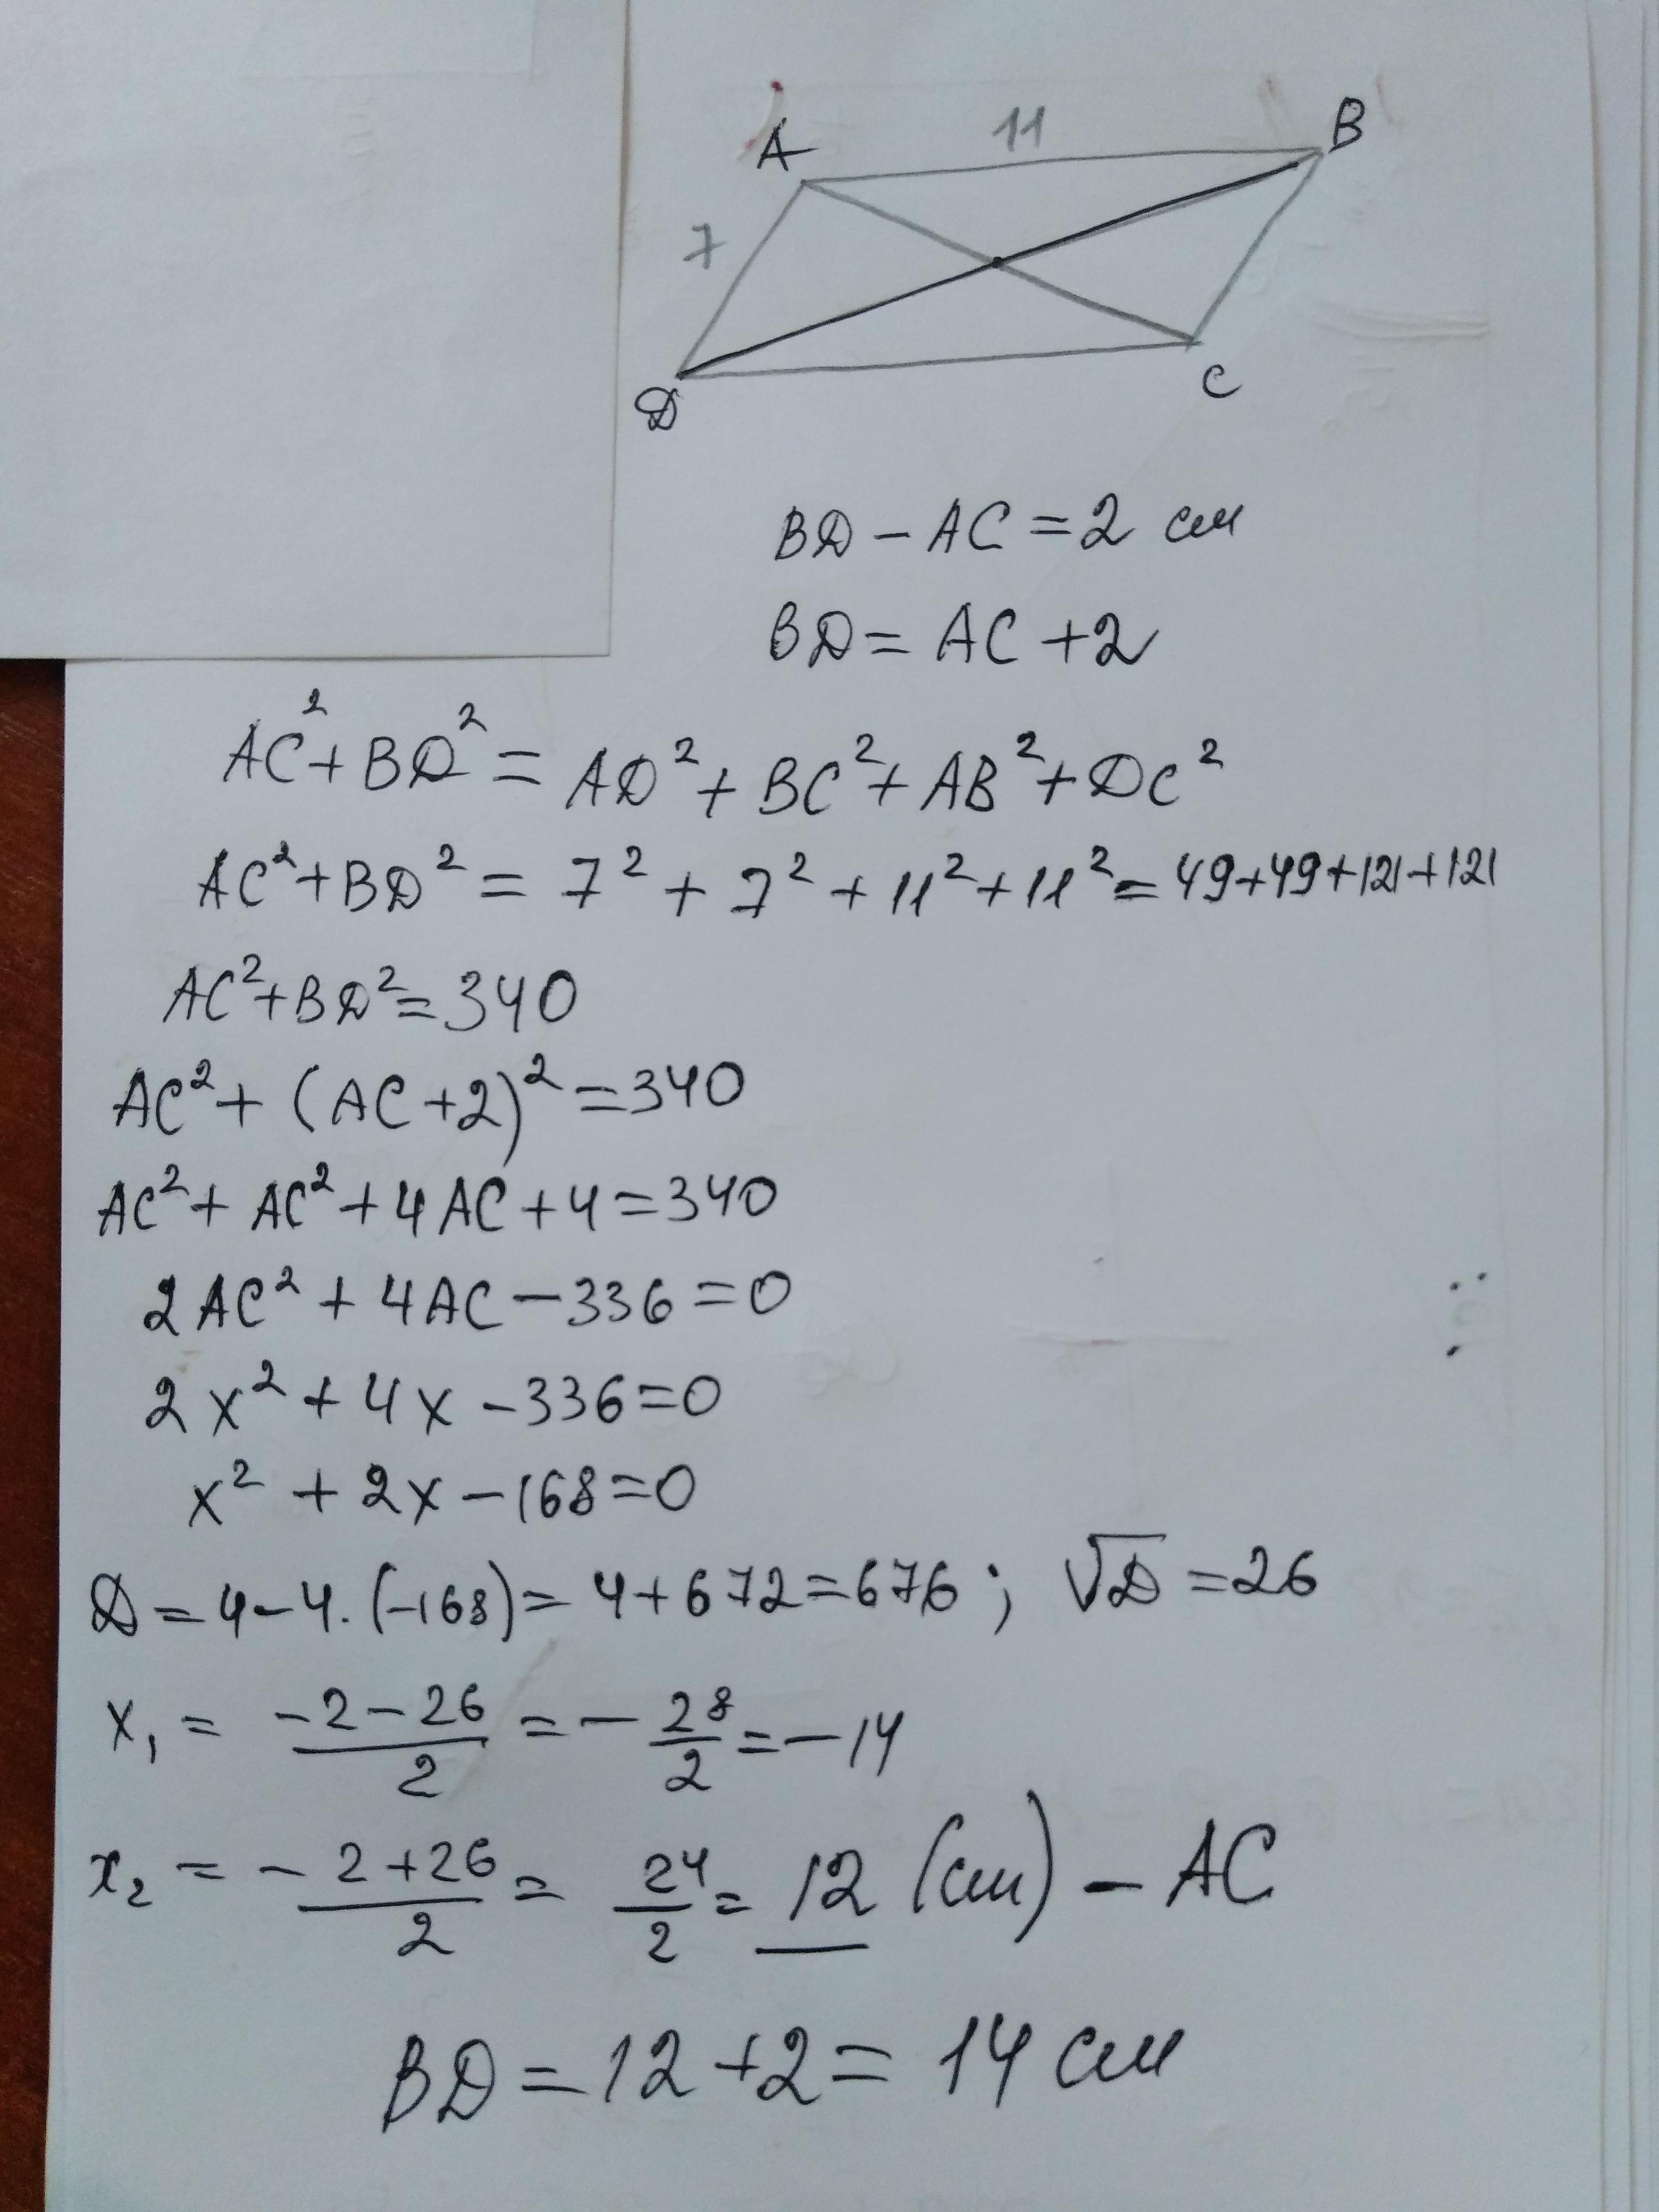 11
A
B
7
D
C
BD - AC = 2 см
BD = AC + 2
AC² + BD² = AD² + BC² + AB² + DC²
AC² + BD² = 7² + 7² + 11² + 11² = 49+49+121+121
AC² + BD² = 340
AC² + (AC + 2)² = 340
AC² + AC² + 4AC + 4 = 340
2AC² + 4AC - 336 = 0
2x² + 4x - 336 = 0
x² + 2x - 168 = 0
D = 4 - 4·(-168) = 4 + 672 = 676 ; √D = 26
x₁ = (-2-26)/2 = -28/2 = -14
x₂ = (-2+26)/2 = 24/2 = 12 (см) - AC
BD = 12 + 2 = 14 см